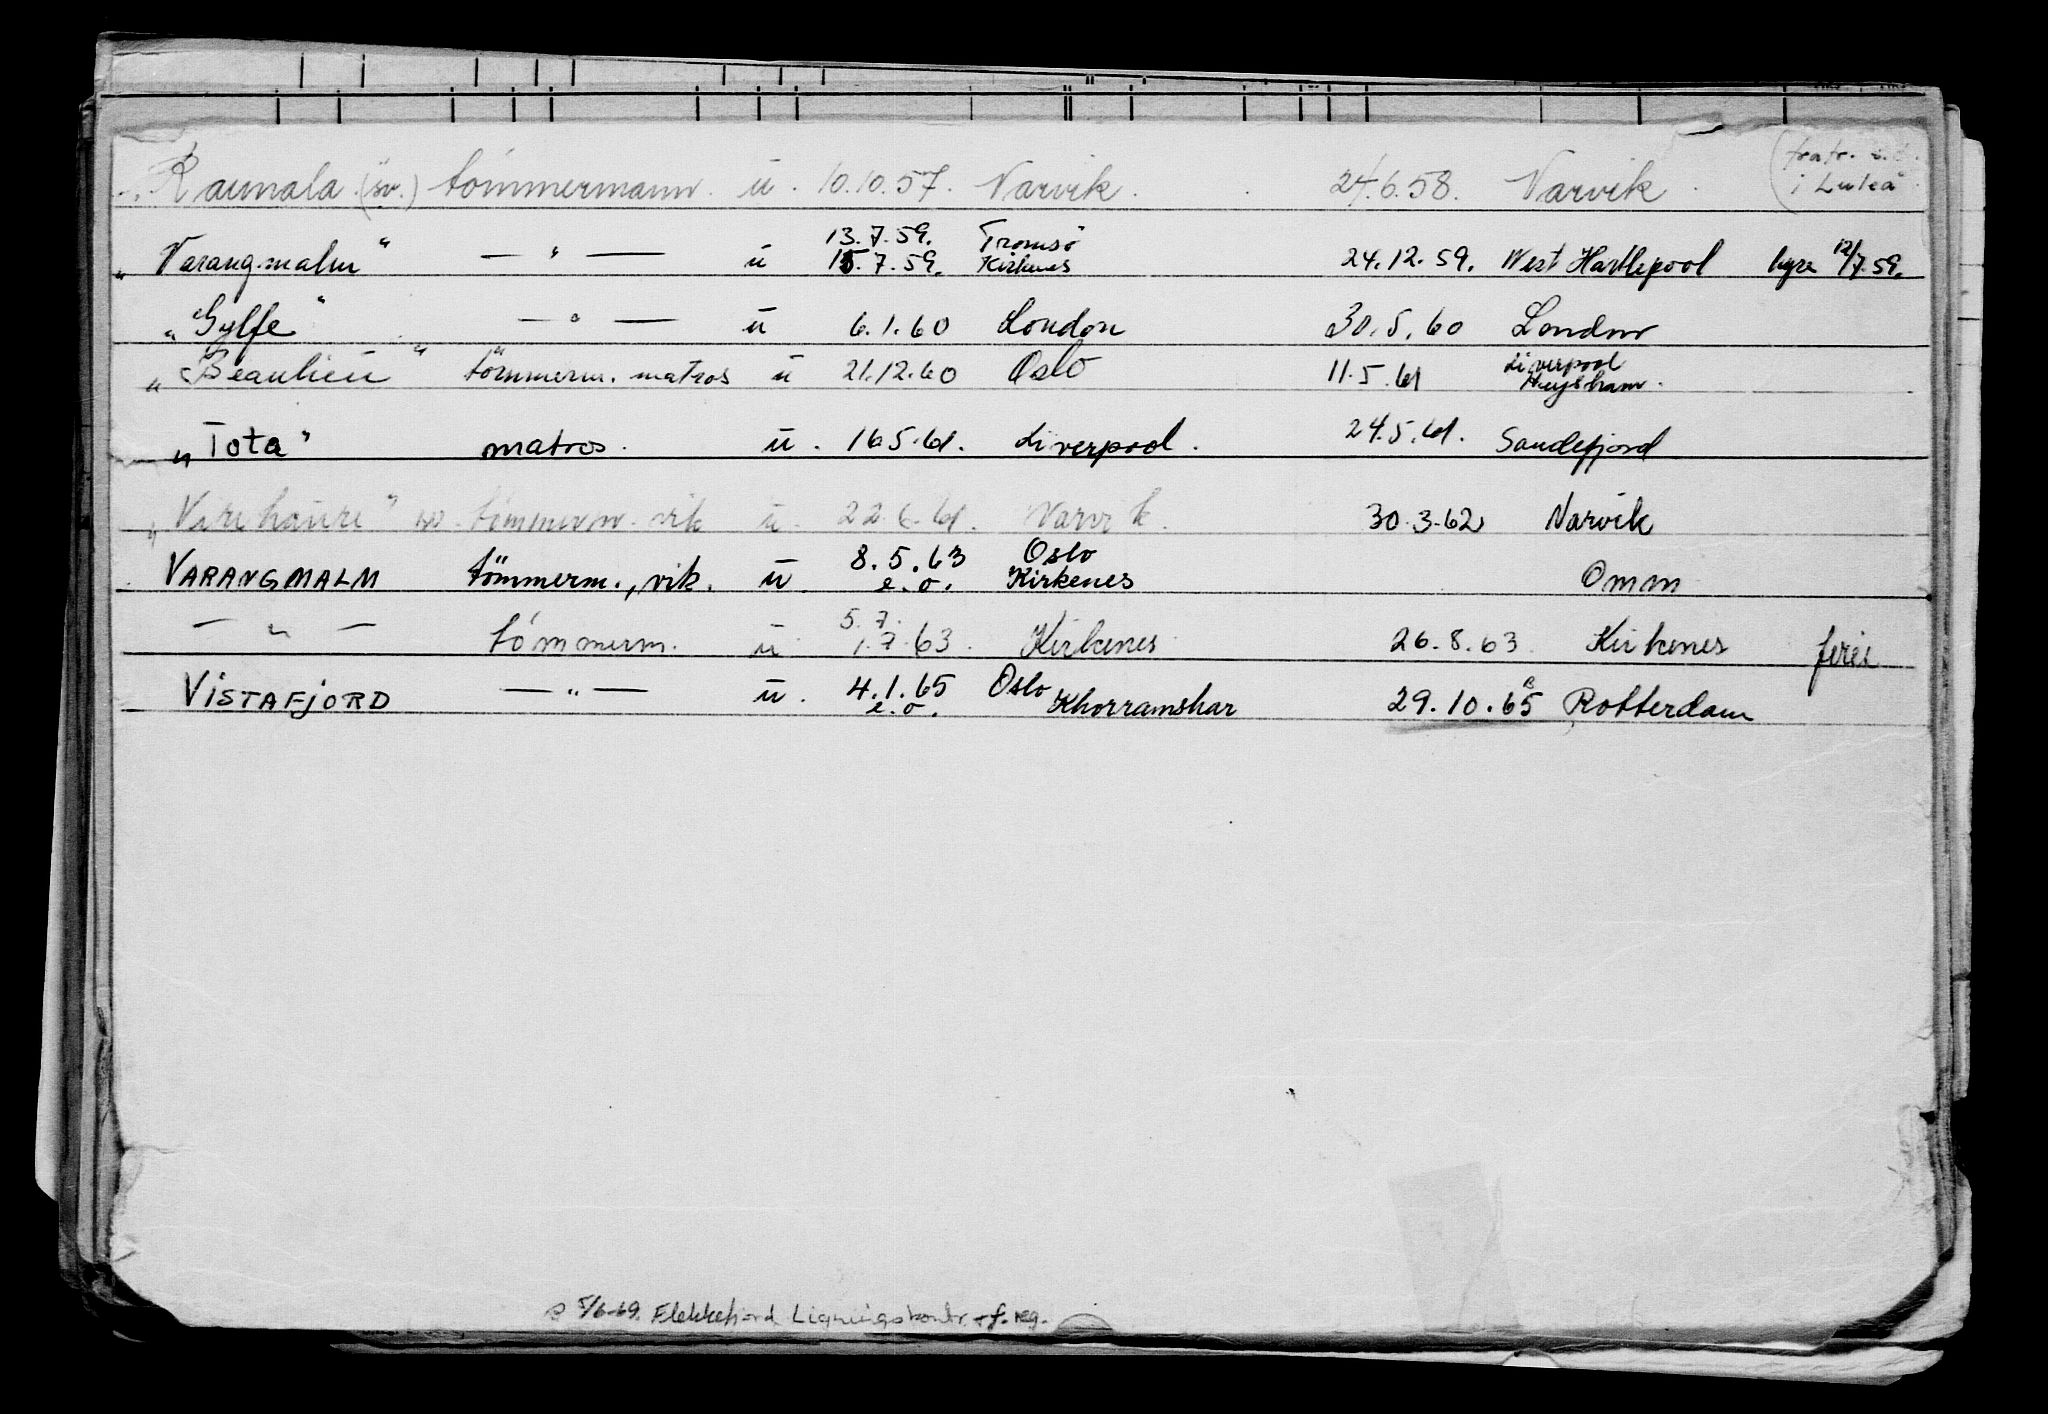 "Raunala (sv.) tömmermann. u. 10.10.57. Narvik. 24.6.58. Narvik. (fratr. i Luleå
"Varangmalm" — " — u 13.7.59. Tromsö
15.7.59. Kirkenes 24.12.59. West Hartlepool hyre 12/7.59.
"Gylfe" — " — u 6.1.60 London 30.5.60 London
"Beaulieu" tömmerm. matros u 21.12.60 Oslo 11.5.61 Liverpool
Heysham.
"Tota" matros. u. 16.5.61. Liverpool. 24.5.61. Sandefjord
"Virihaure" sv. tömmerm. vik u. 22.6.61. Narvik. 30.3.62 Narvik
VARANGMALM tömmerm., vik. u. 8.5.63 Oslo
e.o. Kirkenes Omm
— " — tömmerm. u 5.7.
1.7.63. Kirkenes 26.8.63. Kirkenes ferie
VISTAFJORD — " — u. 4.1.65 Oslo
e.o. Khorramshar 29.10.65 Rotterdam
5/6-69. Flekkefjord Ligningskontr. f. reg.